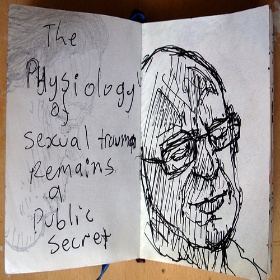 The
Physiology
of
sexual trauma
Remains
a
Public
Secret